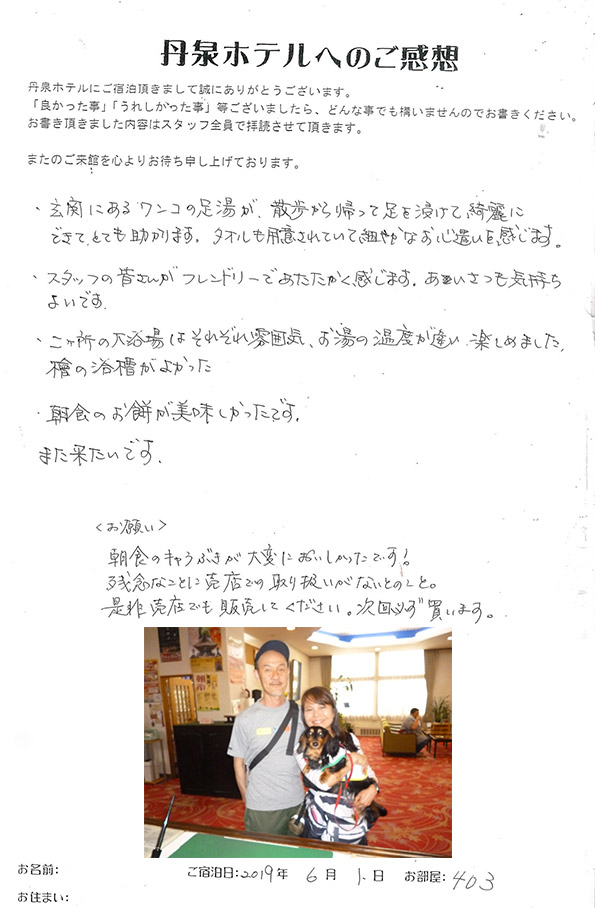 丹泉ホテルへのご感想
丹泉ホテルにご宿泊頂きまして誠にありがとうございます。
「良かった事」「うれしかった事」等ございましたら、どんな事でも構いませんのでお書きください。
お書き頂きました内容はスタッフ全員で拝読させて頂きます。
またのご来館を心よりお待ち申し上げております。
・玄関にあるワンコの足湯が、散歩から帰って足を浸けて綺麗に
できて、とても助かります。タオルも用意されていて細やかなお心遣いを感じます。
・スタッフの皆さんがフレンドリーであたたかく感じます。あいさつも気持ち
よいです。
・二ヶ所の大浴場はそれぞれ雰囲気、お湯の温度が違い楽しめました。
檜の浴槽がよかった
・朝食のお餅が美味しかったです。
また来たいです。
<お願い>
朝食のキャラぶきが大変においしかったです!
残念なことに売店での取り扱いがないとのこと。
是非売店でも販売してください。次回必ず買います。
お名前:
ご宿泊日:2019年 6月 1日 お部屋:403
お住まい: